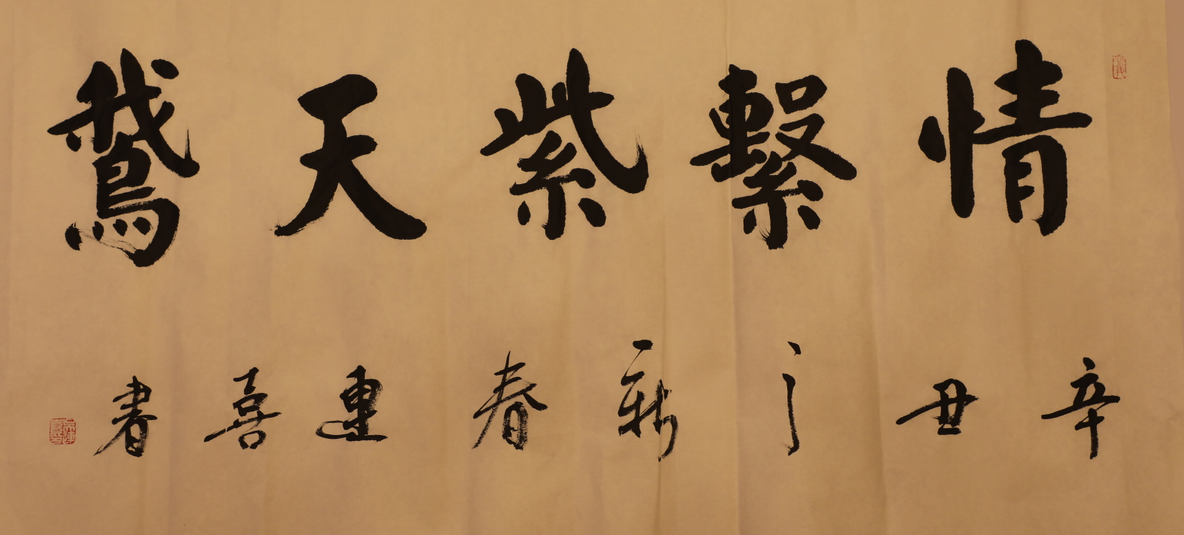 情繫紫天鵞
辛丑之新春連喜書